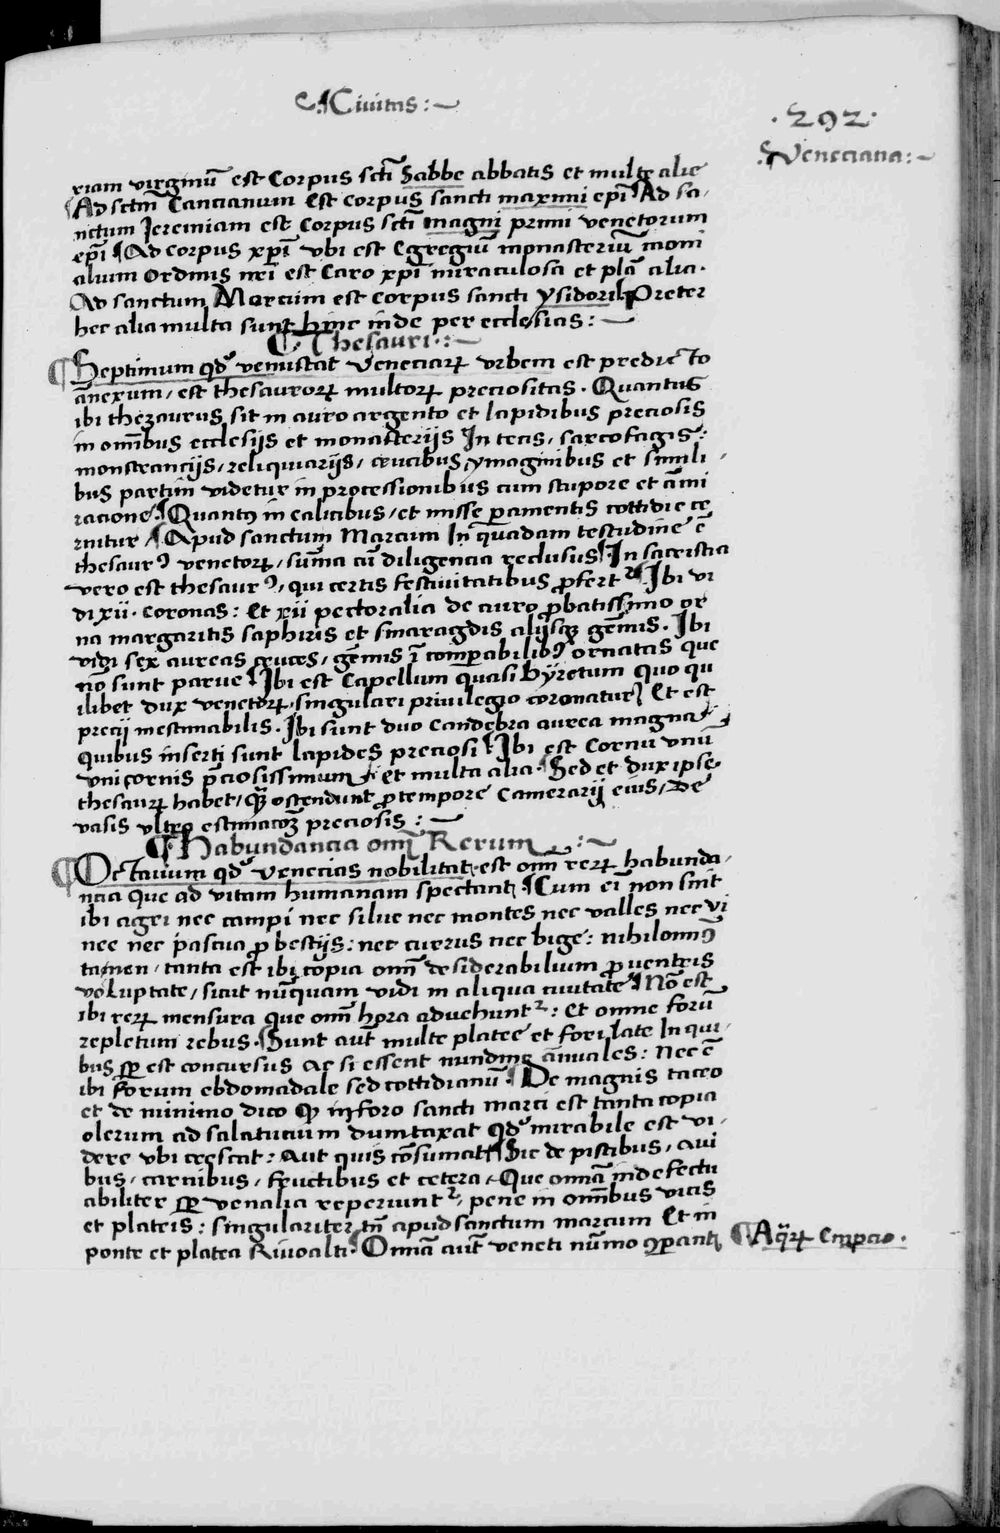 Ciuitas:
.292.
Veneciana:
riam virginū est Corpus scti Sabbe abbatis et multe alie
Ad sctm̄ Cancianum est corpus sancti maximi ep̄i Ad sa-
nctum Jeremiam est corpus scti magni primi venetorum
ep̄i Ad corpus xp̄i vbi est Egregiū monasteriū moni
alium ordinis nr̄i est Caro xp̄i miraculosa et pl̄a alia.
Ad sanctum Marcum est corpus sancti ysidori Preter
hec alia multa sunt hinc inde per ecclesias:
Thesauri:
Septimum qd' venustat Veneciarꝝ vrbem est predicto
ānexum, est thesaurorꝝ multorꝝ preciositas. Quantus
ibi thezaurus sit in auro argento et lapidibus preciosis
in om̄ibus ecclesijs et monasterijs In tecis, sarcofagis:
monstrancijs, reliquiarijs, crucibus, ymaginibus et simili,
bus partim videtur in processionibus cum stupore et āmi
racione. Quantꝰ in calicibus, et misse paramentis cottidie ce
rnitur, Apud sanctum Marcum In quadam testudine ē
thesaurꝰ venetorꝝ, sūma cū diligencia reclusus. In sacristia
vero est thesaurꝰ, qui certis festiuitatibus profertr Ibi vi
di xii. coronas: Et xii pectoralia de auro probatissimo or
na margaritis saphiris et smaragdis alijsqꝫ gem̄is. Ibi
vidi sex aureas cruces, gem̄is ī comparabilibꝰ ornatas que
nō sunt parue Ibi est Capellum quasi byretum quo qu
ilibet dux venetorꝝ singulari priuilegio coronatur Et est
precij inestimabilis. Ibi sunt duo candebra aurea magna
quibus inserti sunt lapides preciosi Ibi est Cornu vnū
vnicornis p̄ciosissimum et multa alia. Sed et dux ipse
thesaurꝝ habet, quē ostendunt pro tempore Camerarij eius, de
vasis vltra estimacōꝫ preciosis:
Habundancia om̄ Rerum:
Octauum qd' Venecias nobilitat est om̄ rerꝝ habunda-
ncia que ad vitam humanam spectant Cum ei non sint
ibi agri nec campi nec silue nec montes nec valles nec vi
nee nec pascua pro bestijs: nec currus nec bige: nihilomꝰ
tamen, tanta est ibi copia om̄ desiderabilium pro ventris
voluptate, sicut nūquam vidi in aliqua ciuitate Nō est
ibi rerꝝ mensura que om̄ hora aduehuntr: Et omne forū
repletum rebus. Sunt aūt multe platee et fori late In qui-
bus sp̄ est concursus ac si essent nundine ānuales: Nec ē
ibi forum ebdomadale sed cottidianū. De magnis taceo
et de minimo dico qꝫ in foro sancti marci est tanta copia
olerum ad salatucium dumtaxat qd' mirabile est vi-
dere vbi crescat: Aut quis cōsumat Sic de piscibus, aui
bus, carnibus, fructibus et cetera, Que omīa indefectu
abiliter sp̄ venalia reperiuntr, pene in om̄ibus vicis
et plateis: singulariter tn̄ apud sanctum marcum Et in
ponte et platea Riuoalti. Omīa aūt veneti nūmo cōparant
Aq̄rꝝ Empcio.